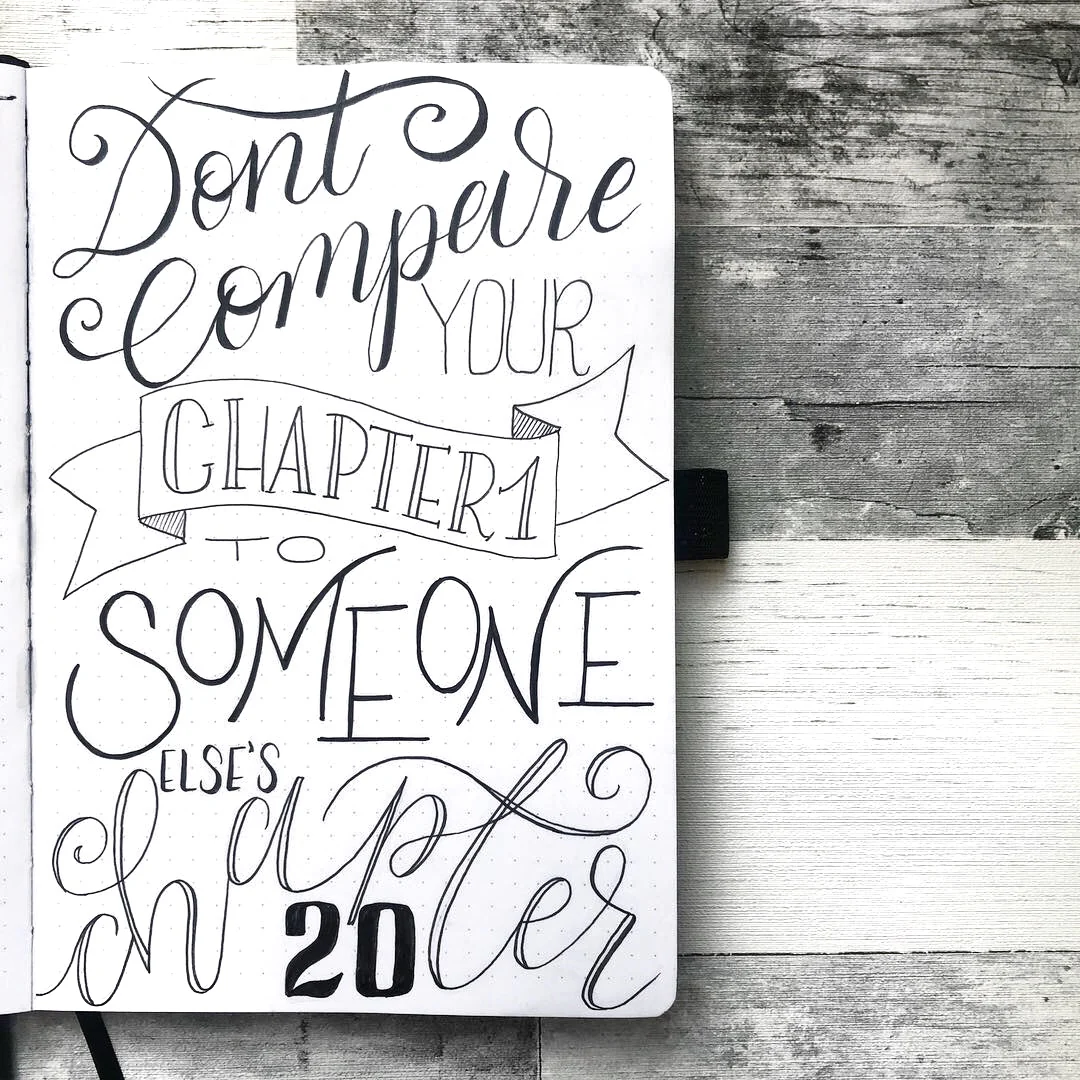 Dont
Compare
YOUR
CHAPTER 1
TO
SOMEONE
ELSE'S
chapter
20